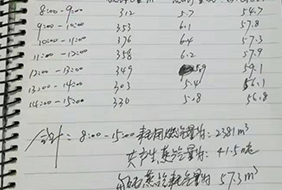 8:00--9:00 312 5.7 54.7
353 6.1 57.8
10:00--11:00 376 6.4 57.3
11:00--12:00 358 6.2 57.9
12:00--13:00 349 5.9 59.1
13:00--14:00 303 56.1
14:00--15:00 330 5.8 56.8
合计：8:00--15:00耗用燃气量为：2381m³
共产生蒸汽量为：41.50吨
每吨蒸汽耗气量为 57.3m³